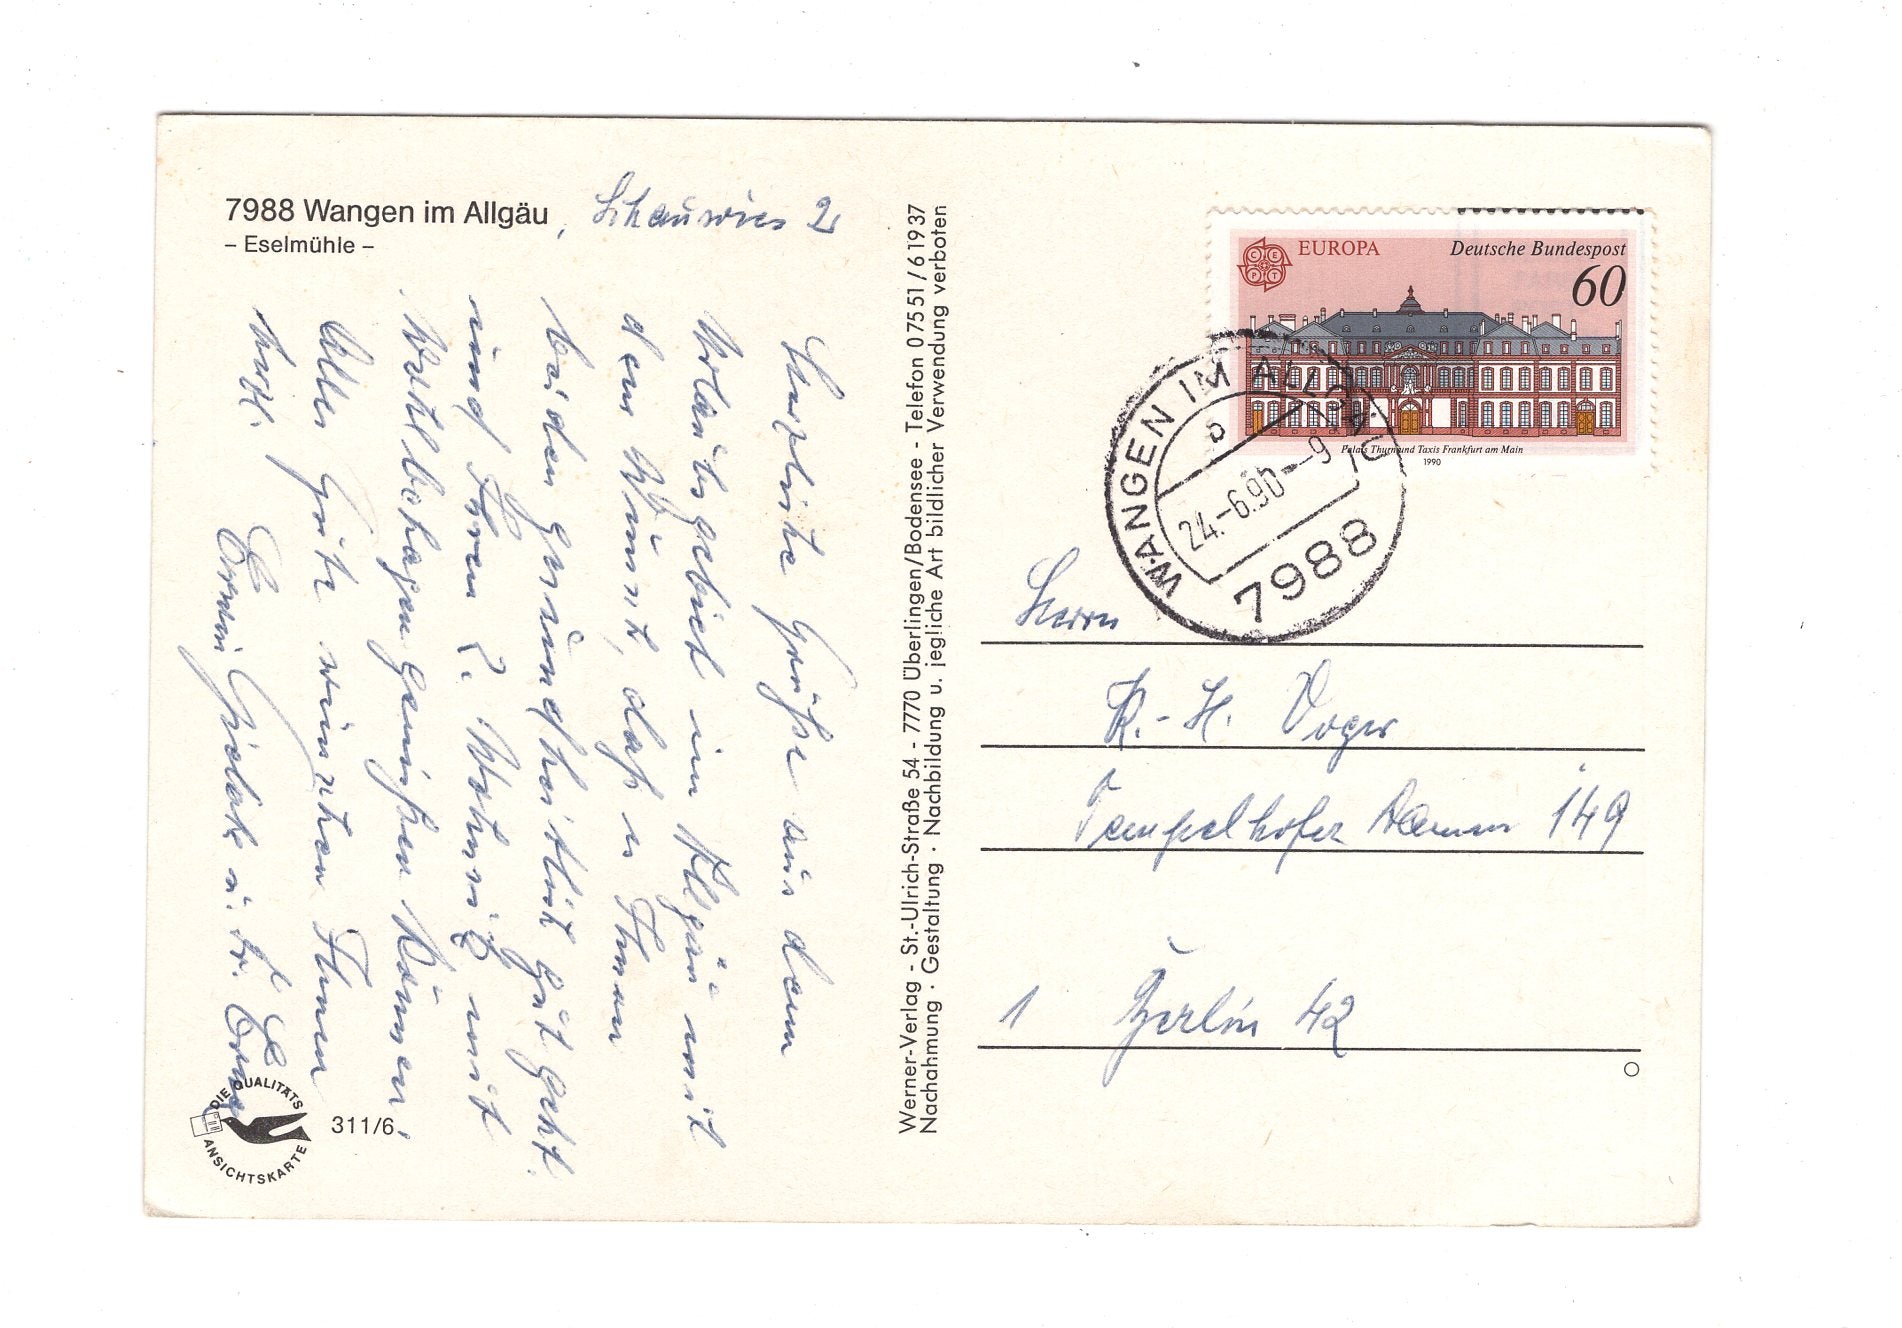 7988 Wangen im Allgäu, Schauwies 2
– Eselmühle –
Herzliche Grüße aus dem
Urlaubsgebiet im Allgäu mit
dem Wunsch, daß es Ihnen
beiden gesundheitlich gut geht.
und Ihren 
Wohlbehagen genießen können,
Alles Gute wünschen Ihnen
Erwin u. Fr. Erna
DIE QUALITÄTS
ANSICHTSKARTE
311/6
Werner-Verlag - St.-Ulrich-Straße 54 - 7770 Überlingen/Bodensee - Telefon 07551/61937
Nachahmung · Gestaltung · Nachbildung u. jegliche Art bildlicher Verwendung verboten
CEPT
EUROPA
Deutsche Bundespost
60
Palais Thurn und Taxis Frankfurt am Main
1990
WANGEN IM ALLGÄU
b
24.-6.90--9
7988
Herrn
K.-H. Voger
Tempelhofer Damm 149
1 Berlin 42